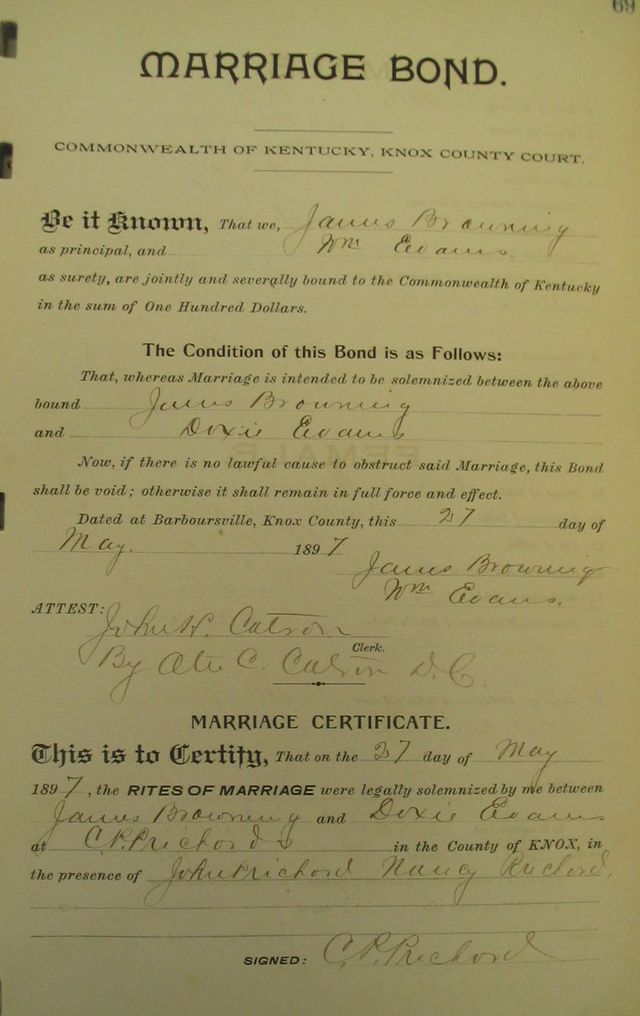 69
MARRIAGE BOND.
COMMONWEALTH OF KENTUCKY, KNOX COUNTY COURT.
Be it Known, That we, James Browning
as principal, and Wm Evans.
as surety, are jointly and severally bound to the Commonwealth of Kentucky
in the sum of One Hundred Dollars.
The Condition of this Bond is as Follows:
That, whereas Marriage is intended to be solemnized between the above
bound James Browning
and Doxie Evans
Now, if there is no lawful cause to obstruct said Marriage, this Bond
shall be void; otherwise it shall remain in full force and effect.
Dated at Barboursville, Knox County, this 27 day of
May. 1897
James Browning
Wm Evans.
ATTEST:
John H. Catron
Clerk.
By C. Catron D.C.
MARRIAGE CERTIFICATE.
This is to Certify, That on the 27 day of May
1897, the RITES OF MARRIAGE were legally solemnized by me between
James Browning and Doxie Evans
at C.P. Prichord's in the County of KNOX, in
the presence of John Prichord Nancy Prichord,
SIGNED: C.P. Prichord